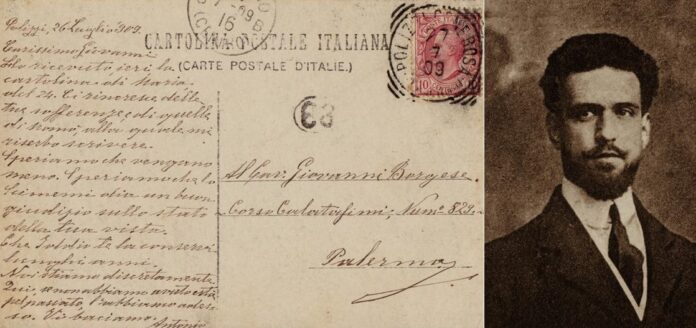 Polizzi, 26 Luglio 909.
Carissimo Giovanni
Ho ricevuto ieri la
cartolina di Maria
del 24. Ci rincresce delle
tue sofferenze, e di quelle
di mamà, alla quale mi
riserbo scrivere.
Speriamo che vengano
meno. Speriamo che lo
Scimemi dia un buon
giudizio sullo stato
della tua vista.
Che Iddio te la conservi
lunghi anni.
Noi stiamo discretamente.
Qui, se non abbiamo avuto està
pel passato, l'abbiamo ades-
so. Vi baciamo.
Antonio
16
CARTOLINA POSTALE ITALIANA
(CARTE POSTALE D'ITALIE.)
POLIZZI GENEROSA
7
7
09
10
63
Al Cav. Giovanni Borgese
Corso Calatafimi, Num.º 829.
Palermo